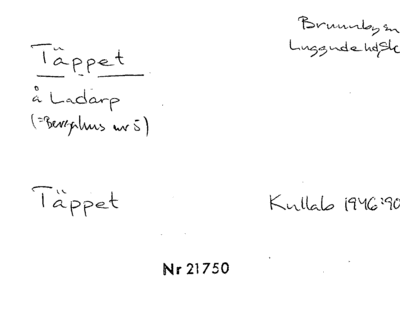 Täppet
å Ladarp
(=Bergahus nr 5)
Brunnby sn
Luggude hd, Sk
Täppet
Kullab 1946:90
Nr 21750